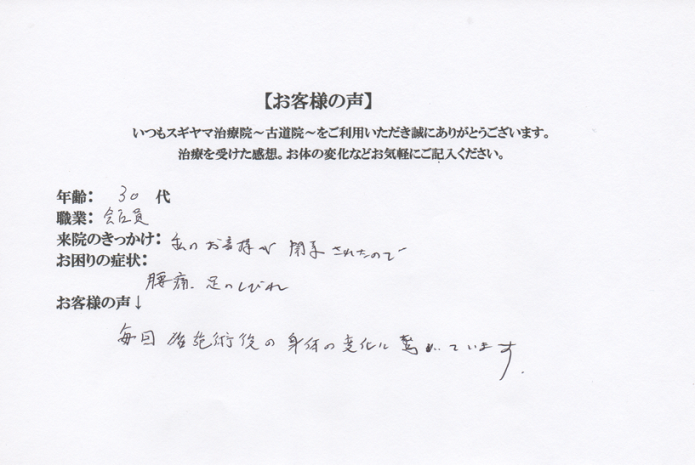 【お客様の声】
いつもスギヤマ治療院～古道院～をご利用いただき誠にありがとうございます。
治療を受けた感想。お体の変化などお気軽にご記入ください。
年齢： 30 代
職業： 会社員
来院のきっかけ： 私のお客様が 開業されたので
お困りの症状：
腰痛、足のしびれ
お客様の声↓
毎回 施術後の身体の変化に驚いています。